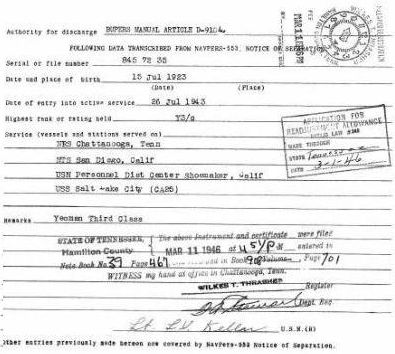 Authority for discharge BUPERS MANUAL ARTICLE D-9104.
FOLLOWING DATA TRANSCRIBED FROM NAVPERS-553, NOTICE OF SEPARATION
Serial or file number 845 72 35
Date and place of birth 15 Jul 1923
(Date) (Place)
Date of entry into active service 26 Jul 1943
Highest rank or rating held Y3/c
Service (vessels and stations served on)
NRS Chattanooga, Tenn
NTS San Diego, Calif
USN Personnel Dist Center Shoemaker, Calif
USS Salt Lake City (CA25)
APPLICATION FOR
READJUSTMENT ALLOWANCE
PUBLIC LAW #346
MADE THROUGH
STATE Tennessee
DATE 3-1-46
Remarks Yeoman Third Class
STATE OF TENNESSEE,
Hamilton County
The above instrument and certificate were filed
MAR 11 1946 at 4 51 P M entered in
Note Book No. 39 Page 467 and recorded in Book 908 Volume, Page 701
WITNESS my hand at office in Chattanooga, Tenn.
WILKES T. THRASHER Register
Dept. Reg.
U.S.N.(R)
Other entries previously made hereon now covered by NavPers-553 Notice of Separation.
MAR 11 1946 PM